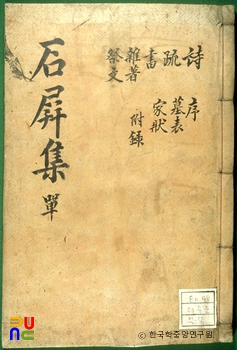 石屛集 單
詩 序
疏 墓表
書 家狀
雜著 附錄
祭文
ⓒ 한국학중앙연구원